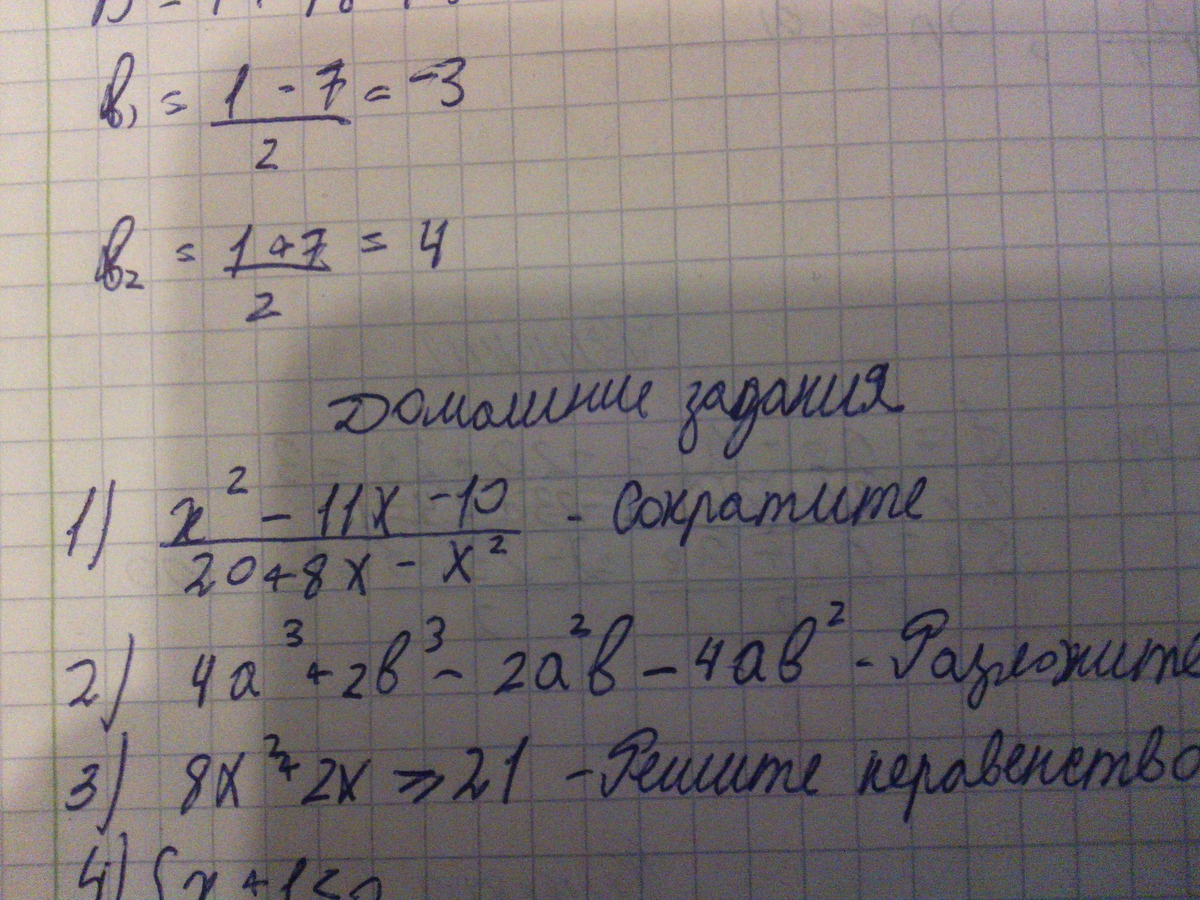 в₁ = (1 - 7)/2 = -3
в₂ = (1+7)/2 = 4
Домашние задания
1) (x² - 11x - 10)/(20+8x - x²) - Сократите
2) 4a³ + 2в³ - 2a²в - 4aв² - Разложите
3) 8x² + 2x ⩾ 21 - Решите неравенство
4) { x + 1 ≤